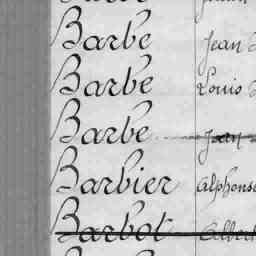 Barbe Jean
Barbe Louis
Barbe Jean
Barbier Alphonse
Barbot Albert